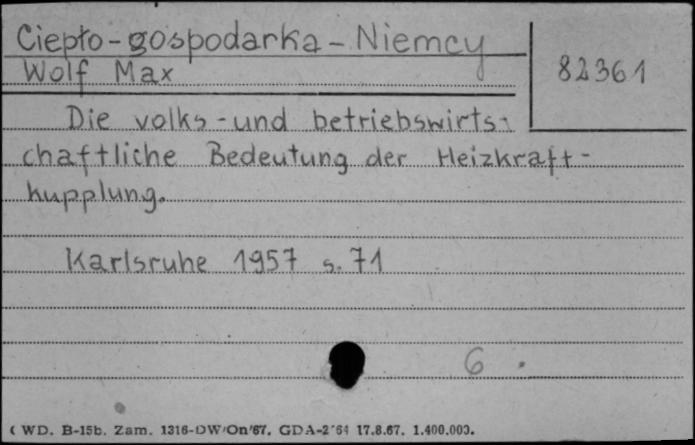 Ciepło-gospodarka-Niemcy
82361
Wolf Max
Die volks-und betriebswirts-
chaftliche Bedeutung der Heizkraft-
kupplung.
Karlsruhe 1957 s. 71
6
( WD. B-15b. Zam. 1316-DW/On/67. GDA-2'64 17.8.67. 1.400.000.